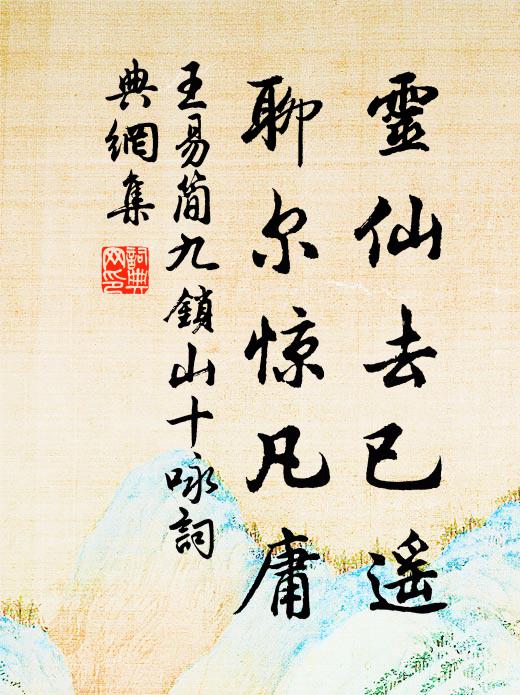 靈仙去已遥
聊尔惊凡庸
王易简九鎖山十咏詞
典網集
詞典网印